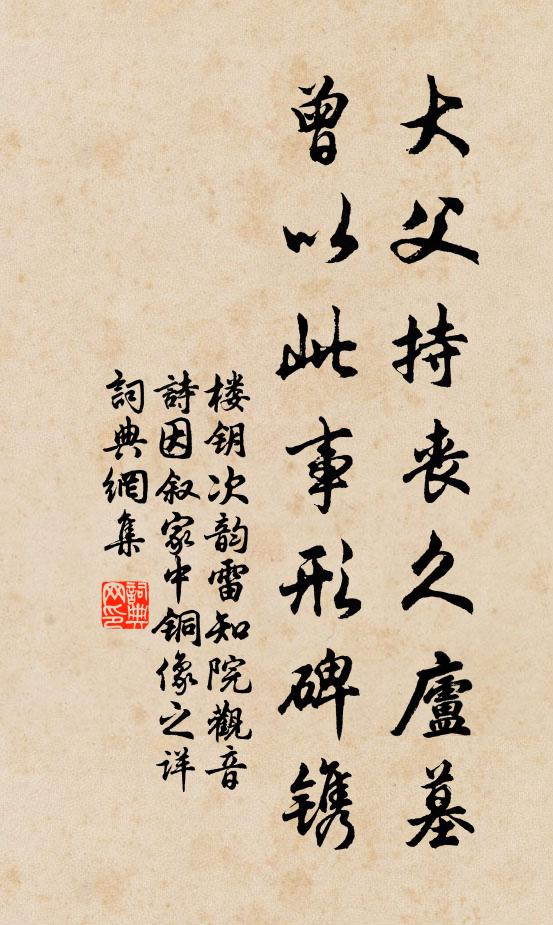 大父持丧久廬墓
曾以此事形碑镌
楼钥次韵雷知院觀音
詩因叙家中铜像之详
詞典網集
詞典
网印